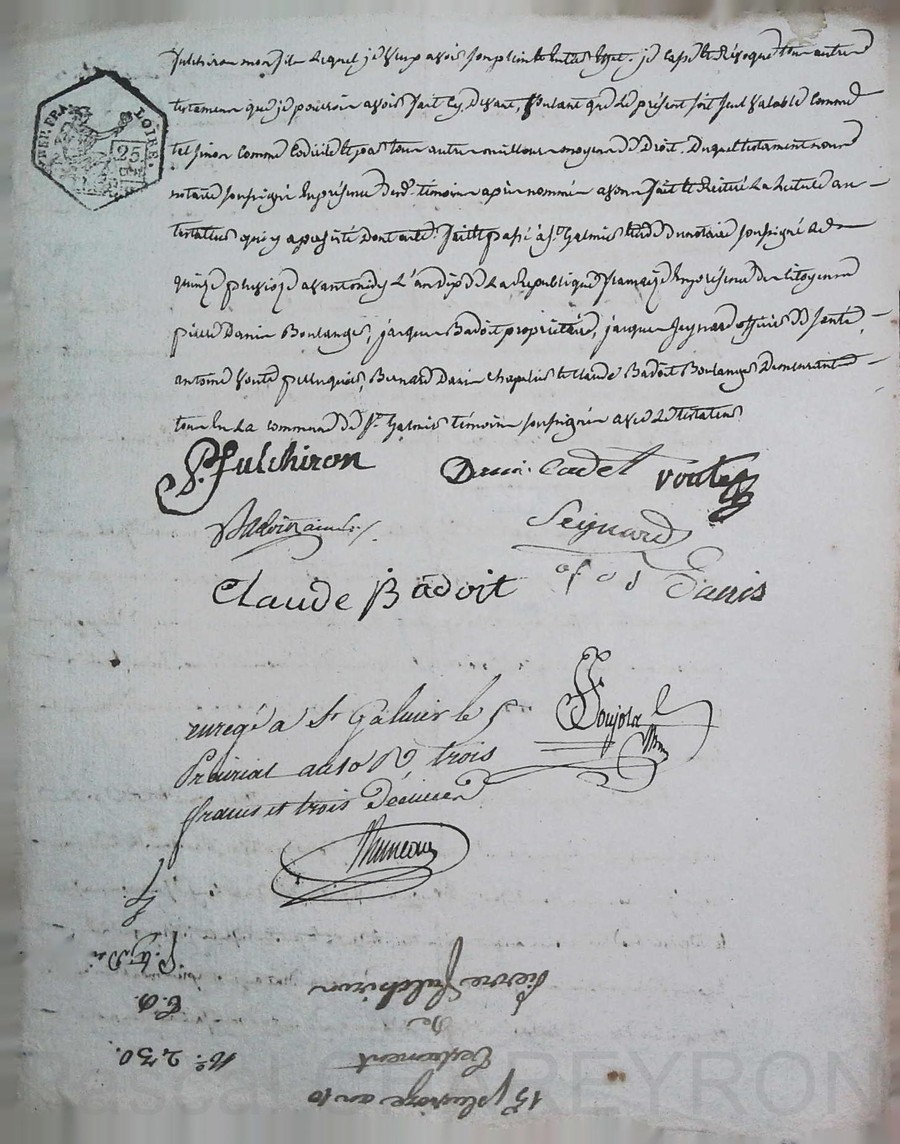 fulchiron mon fils lequel je veux avoir son plein et entier effet. je casse et révoque tout autre
testament que je pourrois avoir fait cy devant, voulant que le présent soit seul valable comme
tel sinon comme codicile et par tout autre meilleur moyen de Droit. Duquel testament nous
notaire soussigné en présence des témoins après nommés avons fait et réitéré la lecture au
testateur qui y a persisté dont acte. fait et passé à St. Galmier étude du notaire soussigné le
quinze pluviose avant midy L'an dix de la République française en présence des citoyens
pierre Danis Boulanger, jacques Badoit propriétaire, jacques Seignard officier de santé,
antoine Voute perruquier, Bernard Danis chapelier et claude Badoit Boulanger demeurants
tous en la commune de St. Galmier témoins soussignés avec le testateur
P. fulchiron
Danis Cadet
voute
Badoit
Seignard
of d
Claude Badoit
Danis
enregé a St Galmier le
Prairial an 10 R trois
francs et trois Decimes
15 pluviose an 10
Testament
De
Pierre fulchiron
No. 230.
REP. FRA.
LOIRE.
25
CEN
PEYRON